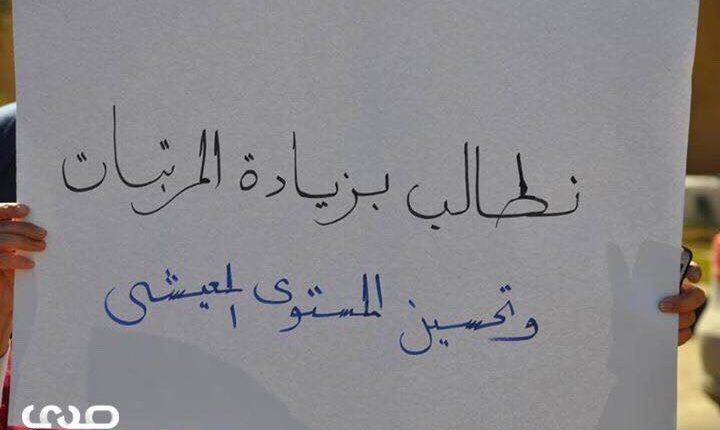 نطالب بزيادة المرتبات
وتحسين المستوى المعيشى
صدى